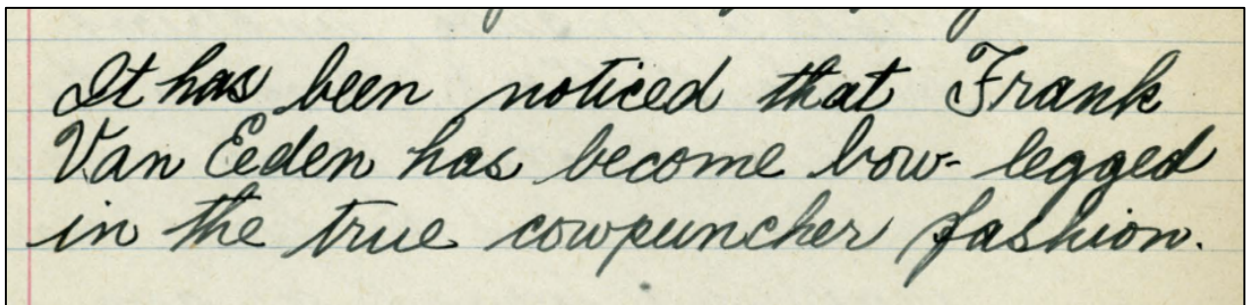 It has been noticed that Frank
Van Eeden has become bow-legged
in the true cowpuncher fashion.